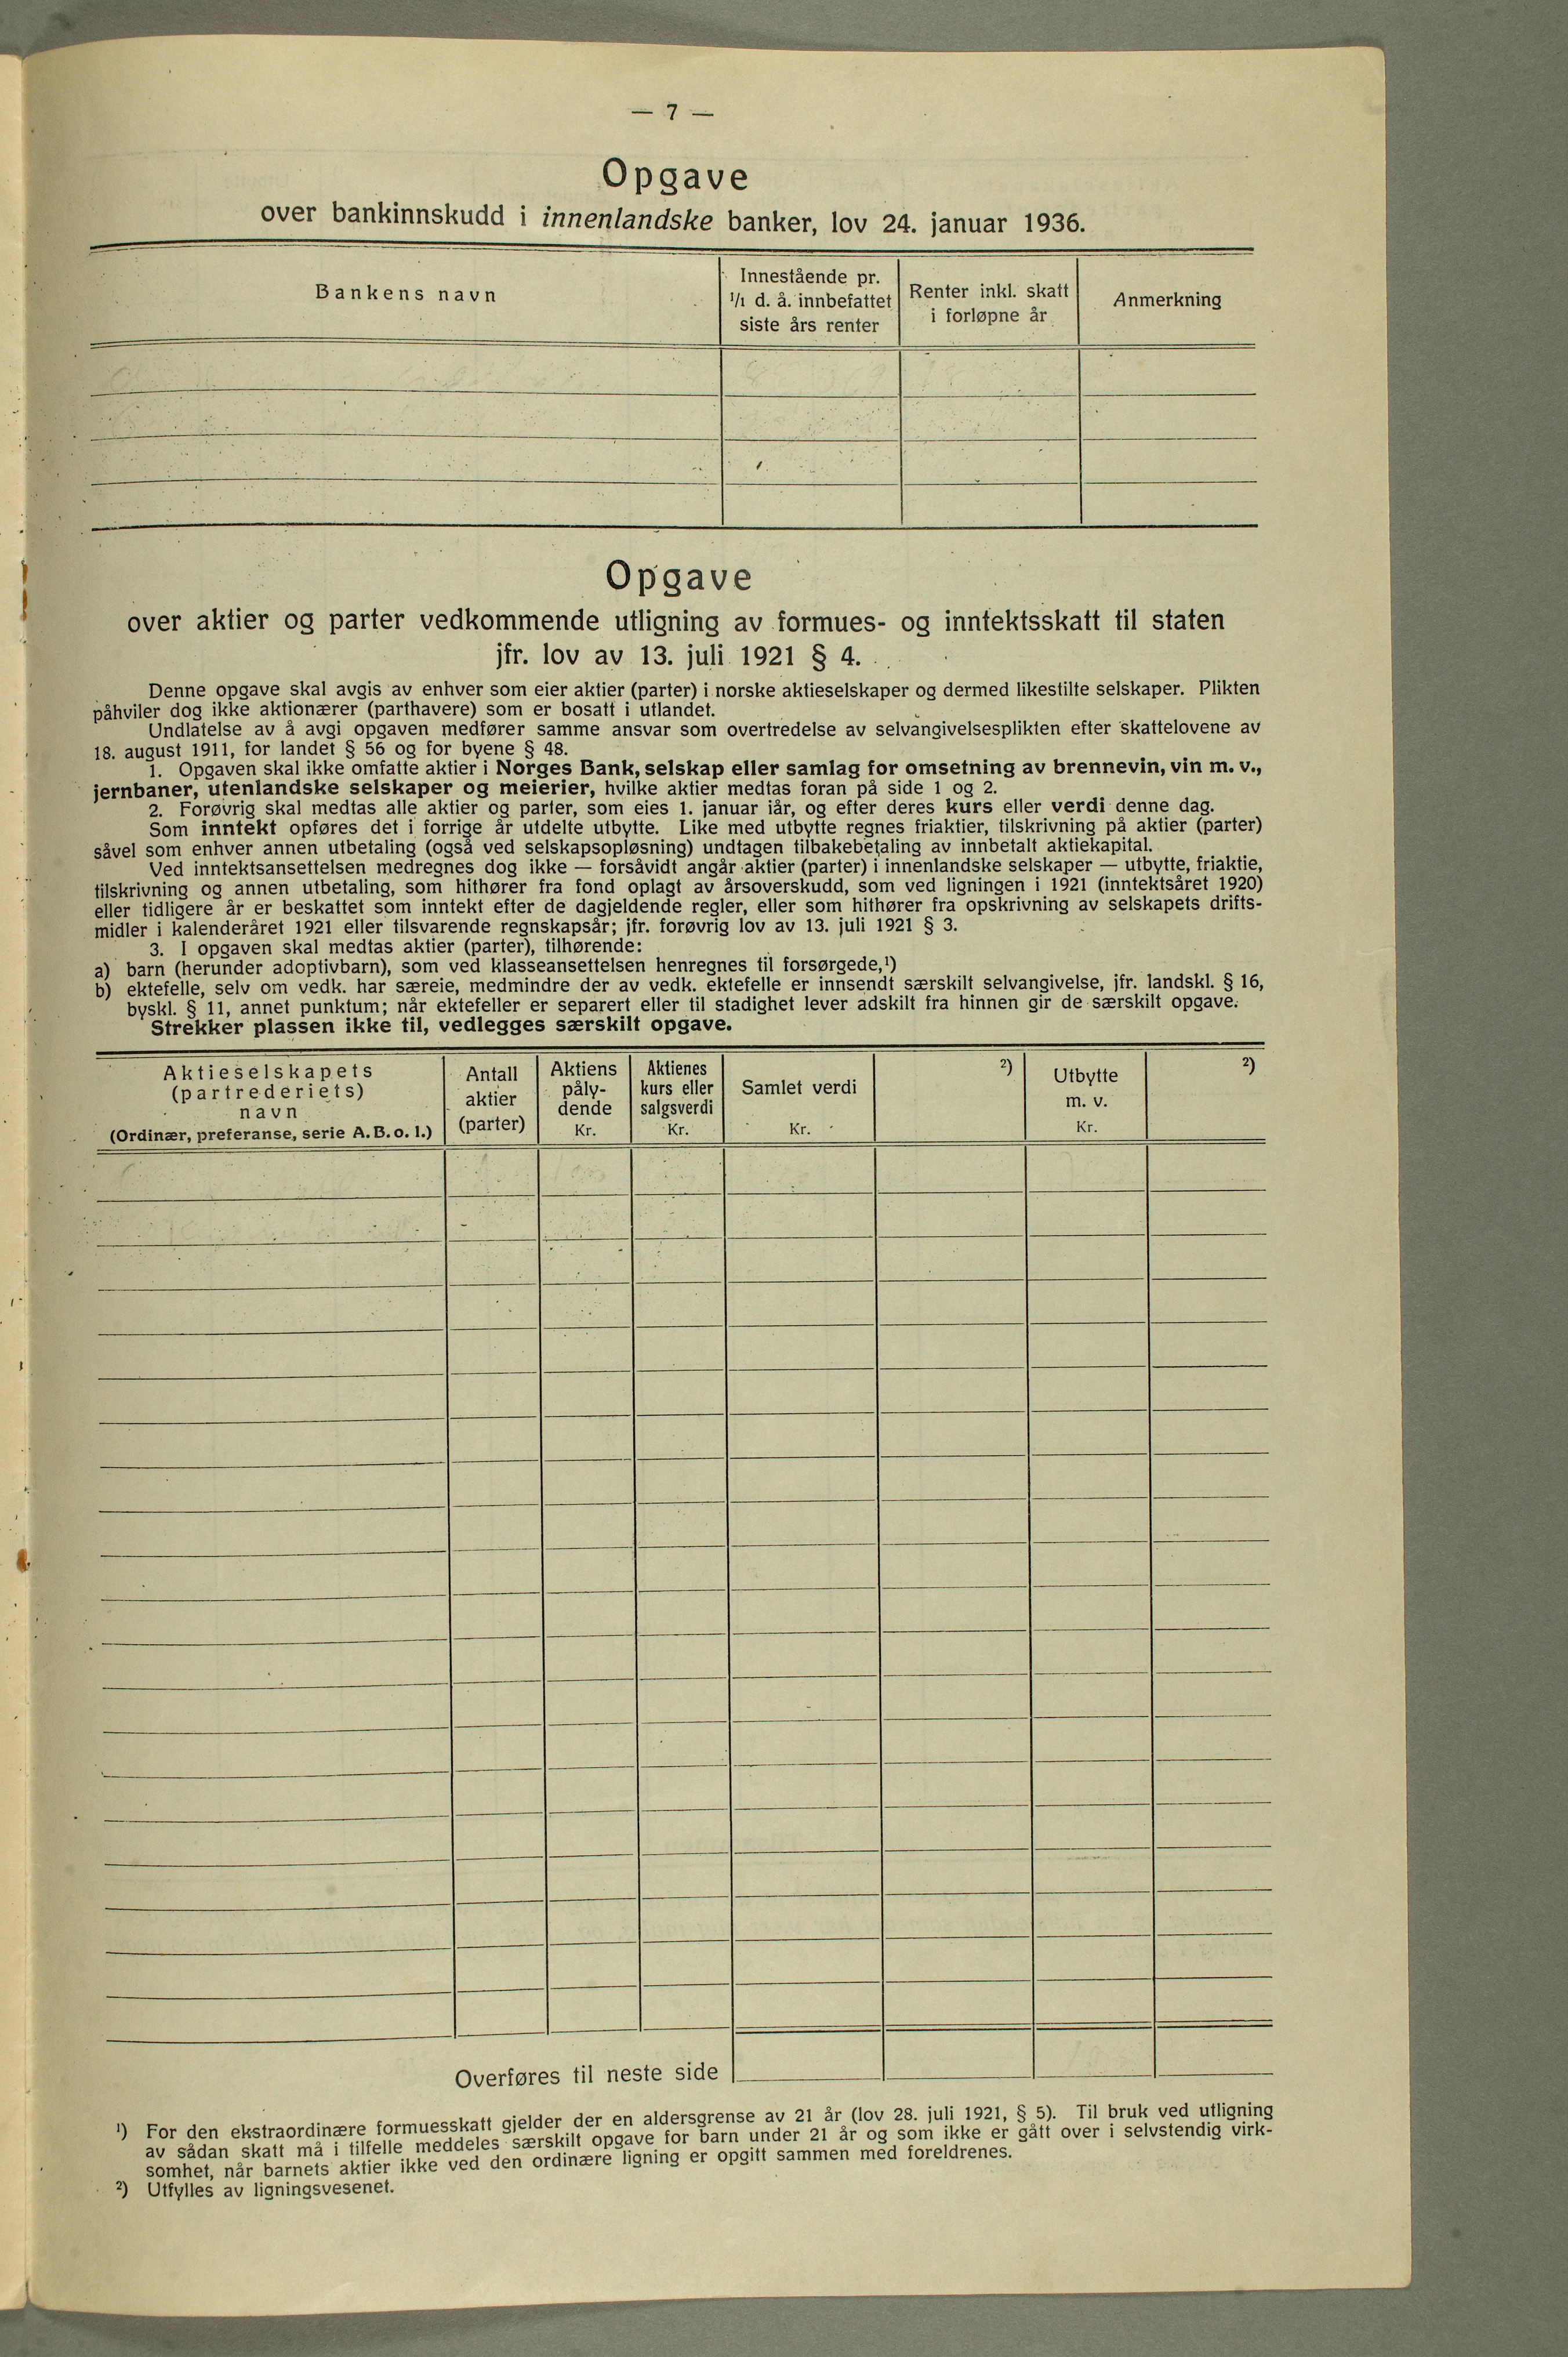 — 7 —
Opgave
over bankinnskudd i innenlandske banker, lov 24. januar 1936.
Bankens navn
Innestående pr.
1/1 d. å. innbefattet
siste års renter
Renter inkl. skatt
i forløpne år
Anmerkning
Opgave
over aktier og parter vedkommende utligning av formues- og inntektsskatt til staten
jfr. lov av 13. juli 1921 § 4.
Denne opgave skal avgis av enhver som eier aktier (parter) i norske aktieselskaper og dermed likestilte selskaper. Plikten
påhviler dog ikke aktionærer (parthavere) som er bosatt i utlandet.
Undlatelse av å avgi opgaven medfører samme ansvar som overtredelse av selvangivelsesplikten efter skattelovene av
18. august 1911, for landet § 56 og for byene § 48.
1. Opgaven skal ikke omfatte aktier i Norges Bank, selskap eller samlag for omsetning av brennevin, vin m. v.,
jernbaner, utenlandske selskaper og meierier, hvilke aktier medtas foran på side 1 og 2.
2. Forøvrig skal medtas alle aktier og parter, som eies 1. januar iår, og efter deres kurs eller verdi denne dag.
Som inntekt opføres det i forrige år utdelte utbytte. Like med utbytte regnes friaktier, tilskrivning på aktier (parter)
såvel som enhver annen utbetaling (også ved selskapsopløsning) undtagen tilbakebetaling av innbetalt aktiekapital.
Ved inntektsansettelsen medregnes dog ikke — forsåvidt angår aktier (parter) i innenlandske selskaper — utbytte, friaktie,
tilskrivning og annen utbetaling, som hithører fra fond oplagt av årsoverskudd, som ved ligningen i 1921 (inntektsåret 1920)
eller tidligere år er beskattet som inntekt efter de dagjeldende regler, eller som hithører fra opskrivning av selskapets drifts-
midler i kalenderåret 1921 eller tilsvarende regnskapsår; jfr. forøvrig lov av 13. juli 1921 § 3.
3. I opgaven skal medtas aktier (parter), tilhørende:
a) barn (herunder adoptivbarn), som ved klasseansettelsen henregnes til forsørgede,¹)
b) ektefelle, selv om vedk. har særeie, medmindre der av vedk. ektefelle er innsendt særskilt selvangivelse, jfr. landskl. § 16,
byskl. § 11, annet punktum; når ektefeller er separert eller til stadighet lever adskilt fra hinnen gir de særskilt opgave.
Strekker plassen ikke til, vedlegges særskilt opgave.
Aktieselskapets
(partrederiets)
navn
(Ordinær, preferanse, serie A. B. o. l.)
Antall
aktier
(parter)
Aktiens
påly-
dende
Kr.
Aktienes
kurs eller
salgsverdi
Kr.
Samlet verdi
Kr.
²)
Utbytte
m. v.
Kr.
²)
Overføres til neste side
¹) For den ekstraordinære formuesskatt gjelder der en aldersgrense av 21 år (lov 28. juli 1921, § 5). Til bruk ved utligning
av sådan skatt må i tilfelle meddeles særskilt opgave for barn under 21 år og som ikke er gått over i selvstendig virk-
somhet, når barnets aktier ikke ved den ordinære ligning er opgitt sammen med foreldrenes.
²) Utfylles av ligningsvesenet.